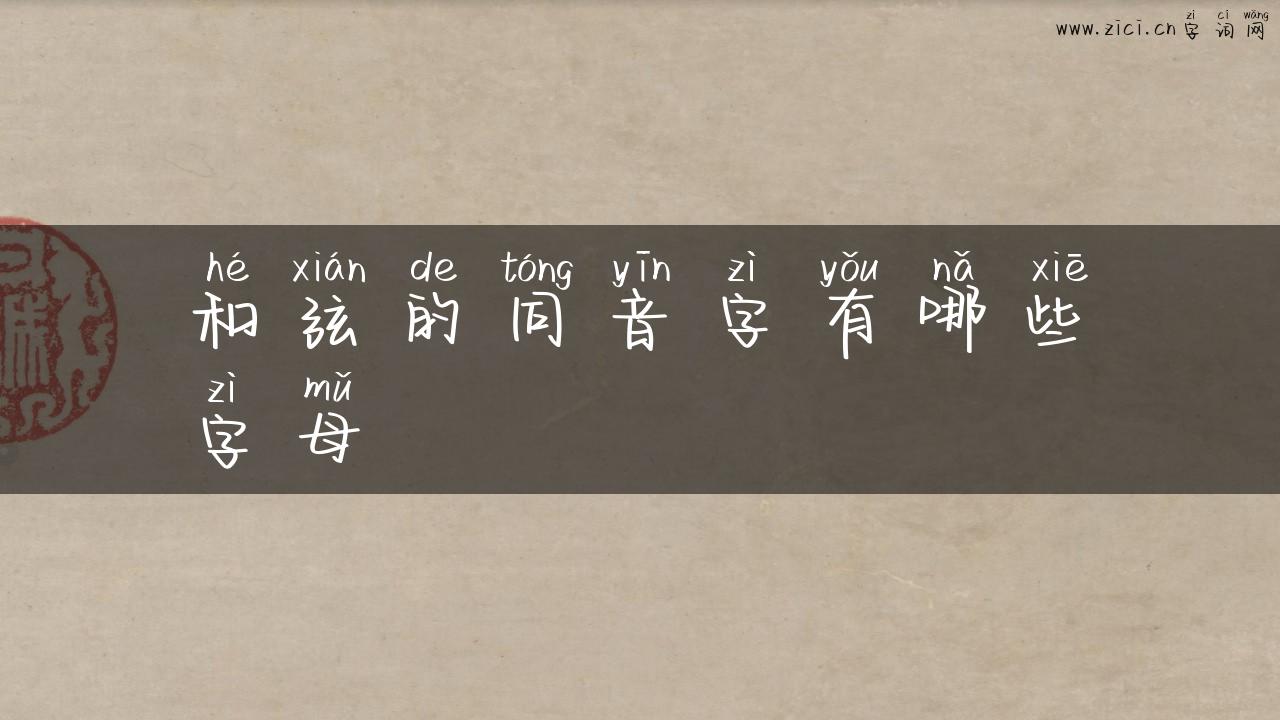 zì cí wǎng
www.zici.cn字词网
hé xián de tóng yīn zì yǒu nǎ xiē
和弦的同音字有哪些
zì mǔ
字母